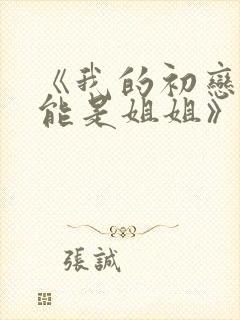 《我的初戀
能是姐姐》
張誠